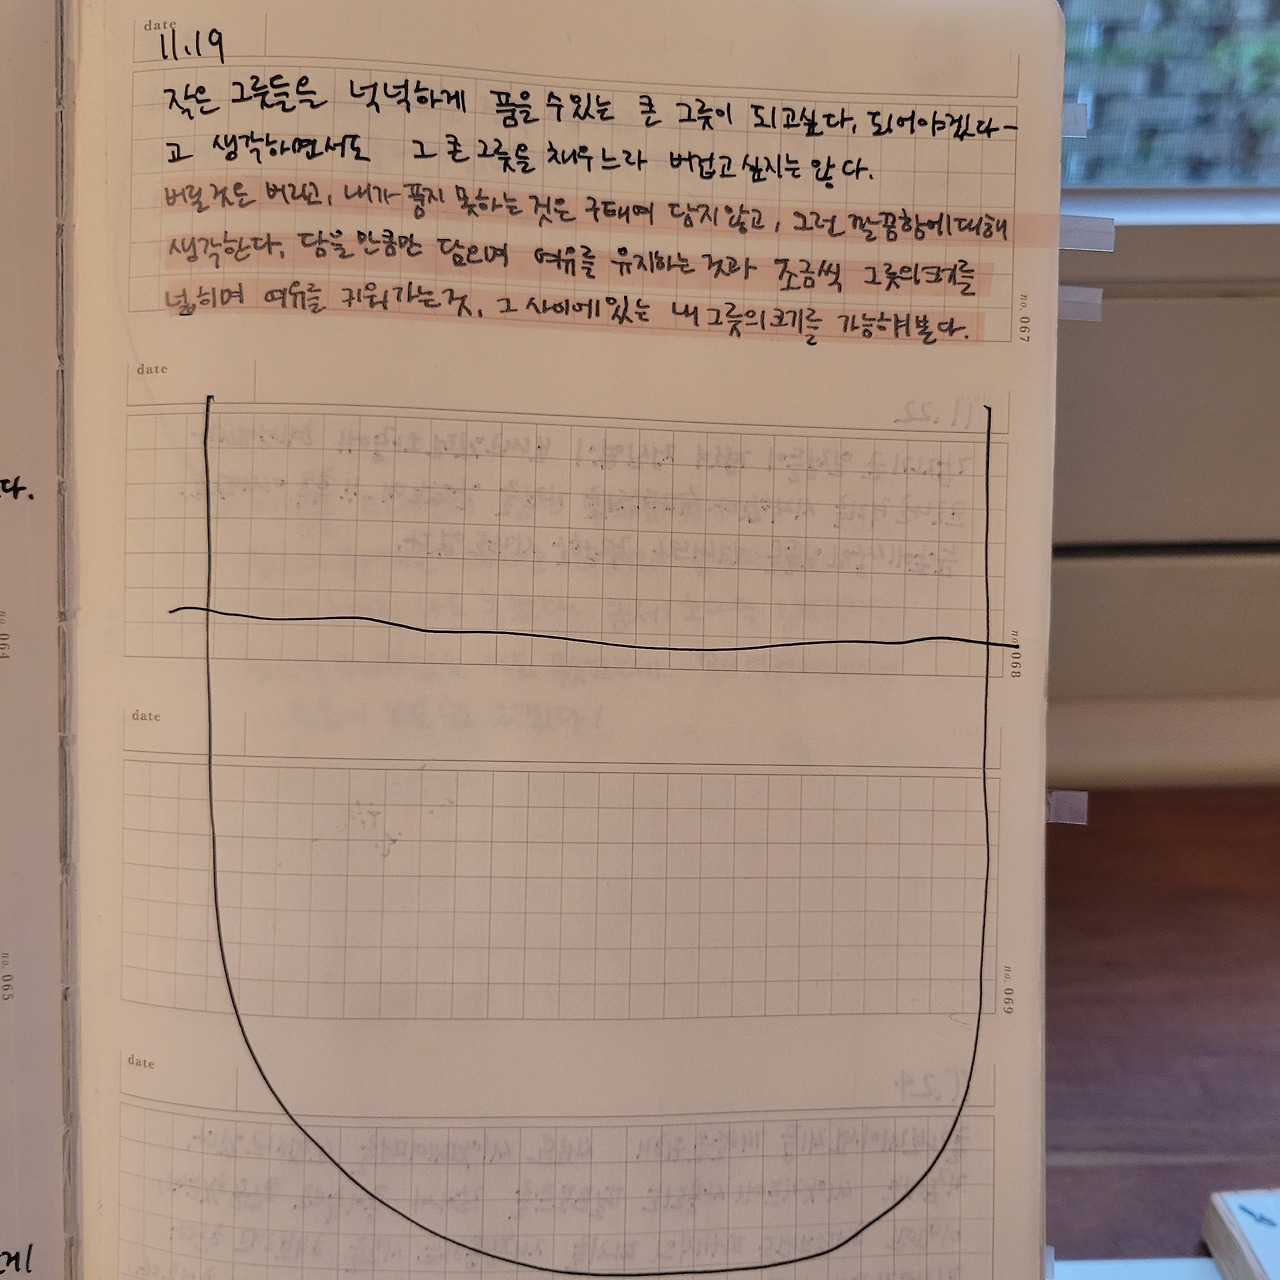 date
11.19
작은 그릇들을 넉넉하게 품을 수 있는 큰 그릇이 되고싶다, 되어야겠다-
고 생각하면서도 그 큰 그릇을 채우느라 버겁고 싶지는 않다.
버릴 것은 버리고, 내가 품지 못하는 것은 구태여 담지 않고, 그런 깔끔함에 대해
생각한다, 담을 만큼만 담으며 여유를 유지하는 것과 조금씩 그릇의 크기를
넓히며 여유를 키워가는 것, 그 사이에 있는 내 그릇의 크기를 가늠해본다.
no. 067
date
no. 068
date
no. 069
date
다.
no. 064
no. 065
게